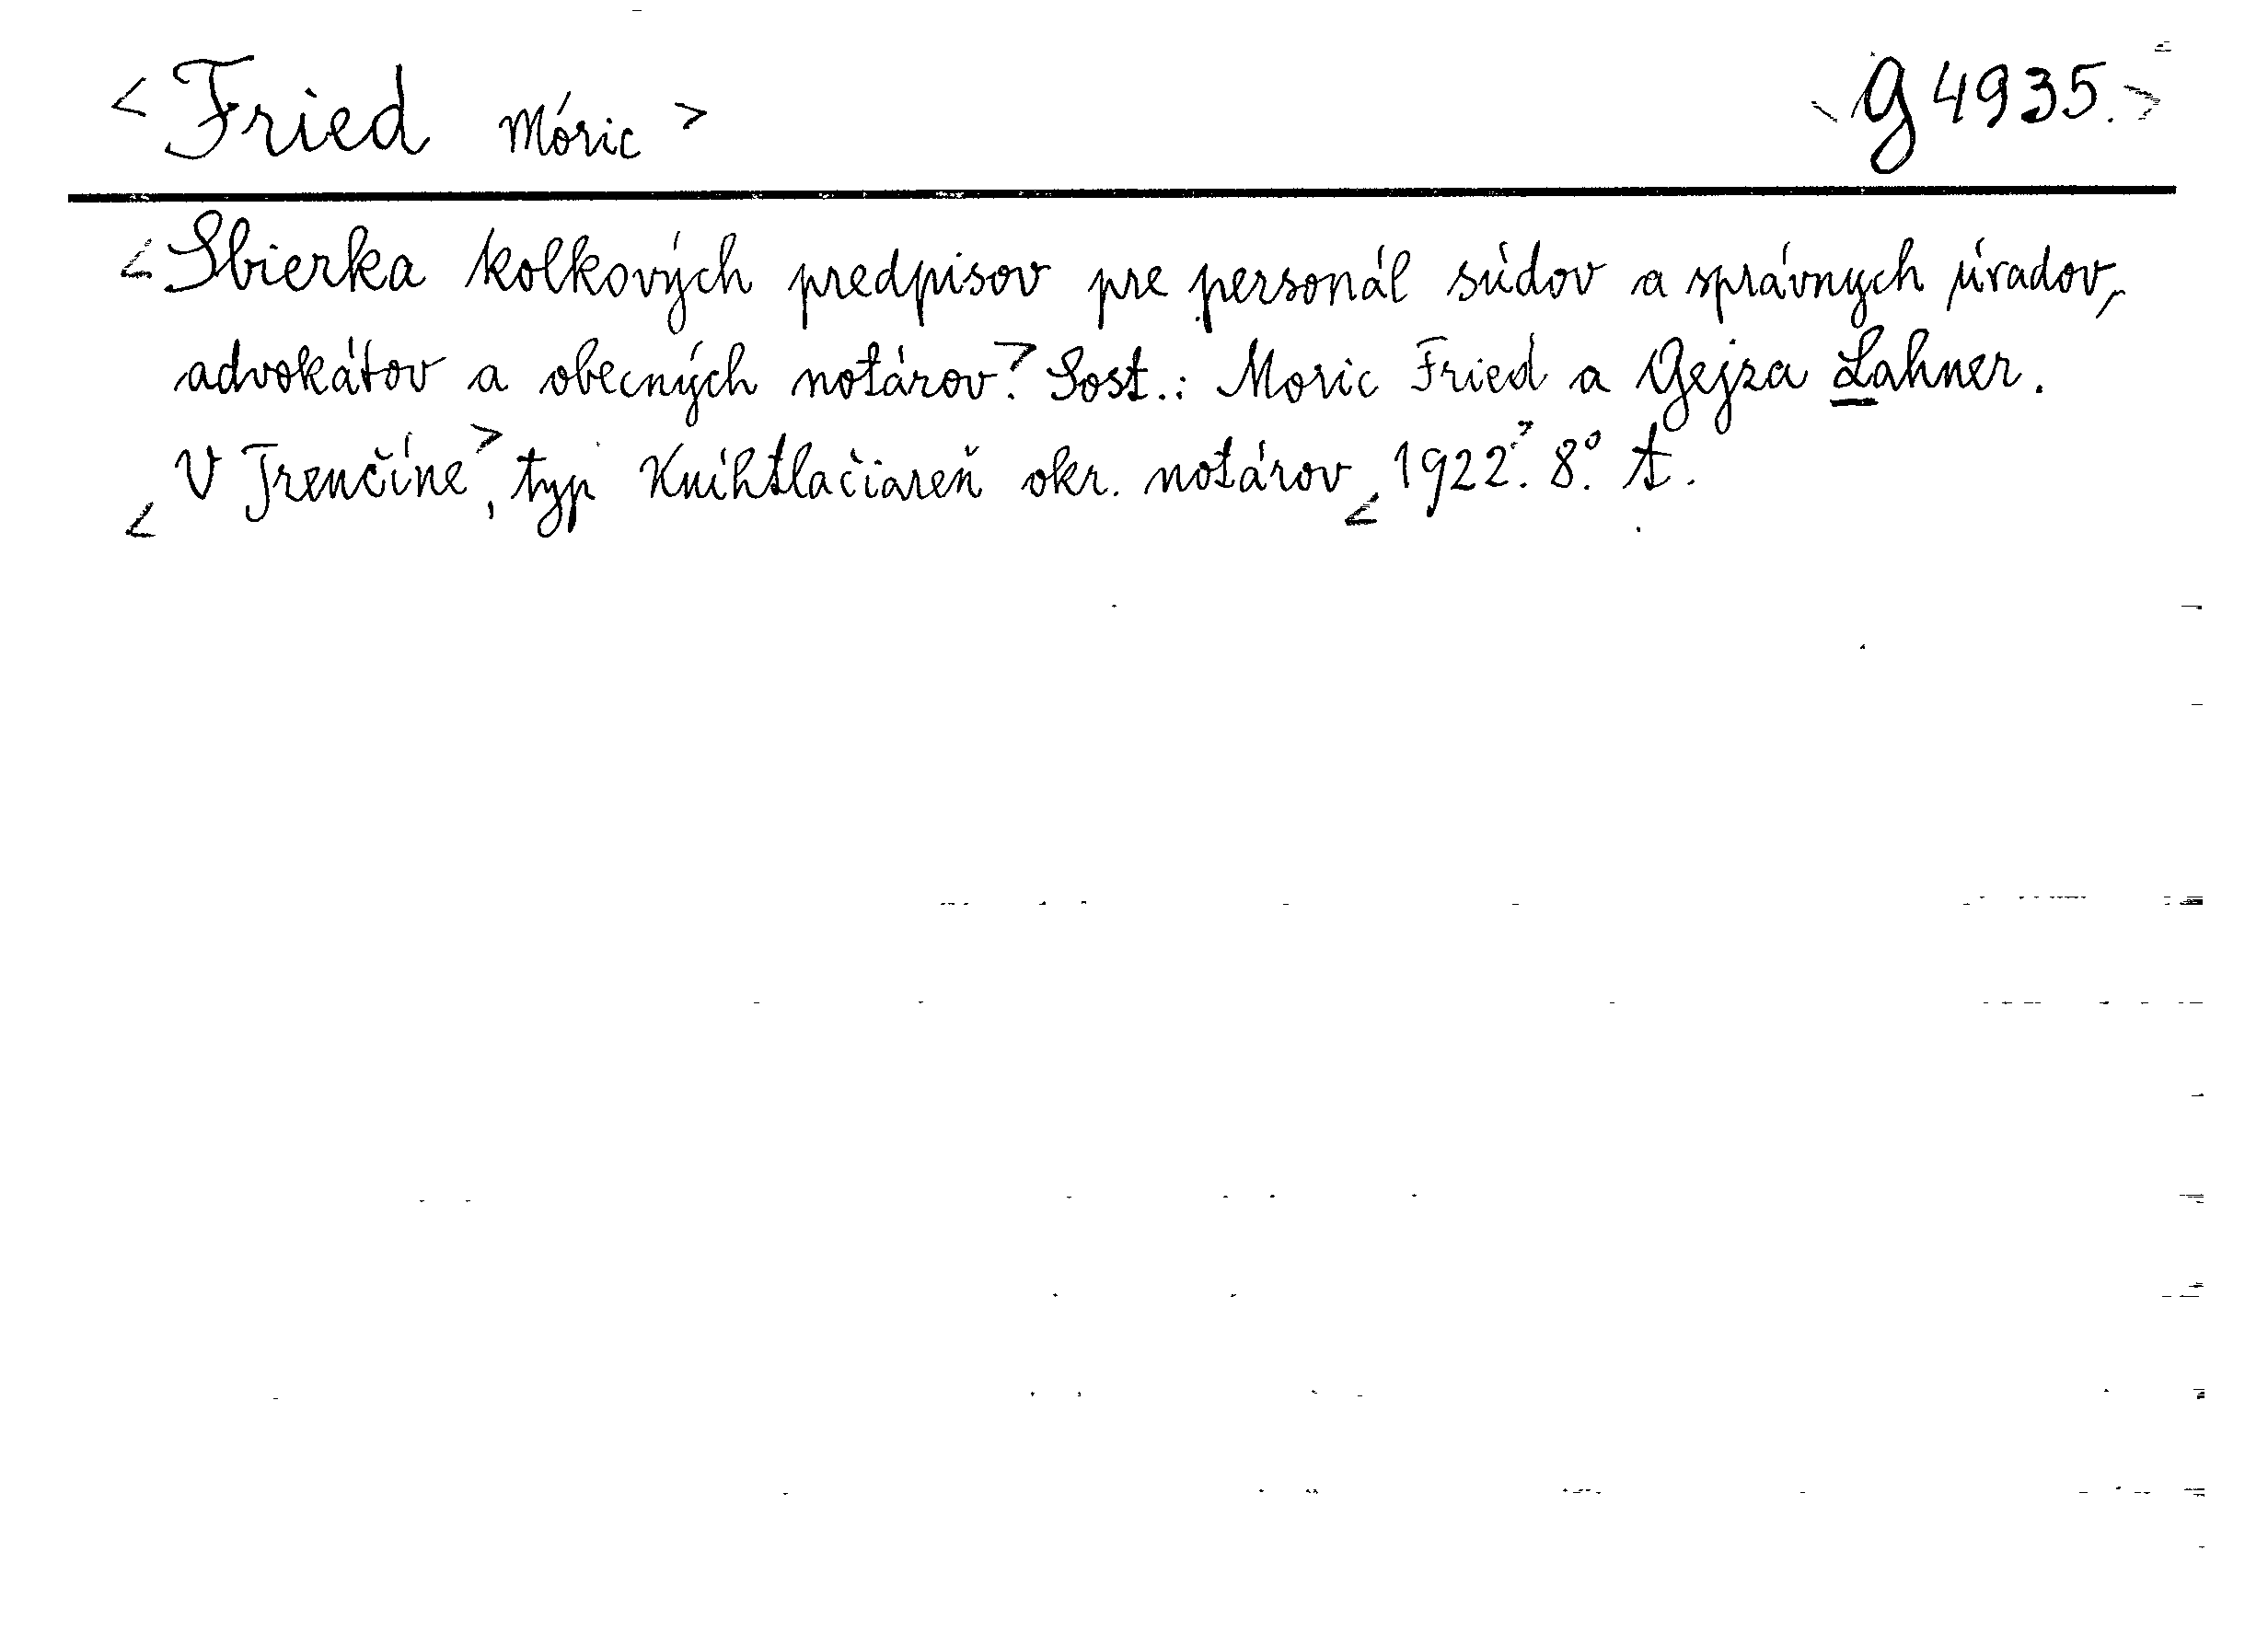 <Fried Móric> <g 4935.>
<Sbierka kolkových predpisov pre personál súdov a správnych úradov,
advokátov a obecných notárov>. Sost.: Moric Fried a Gejza Lahner.
<V Trenčíne>, typ Knihtlačiareň okr. notárov, <1922>. 8° t.